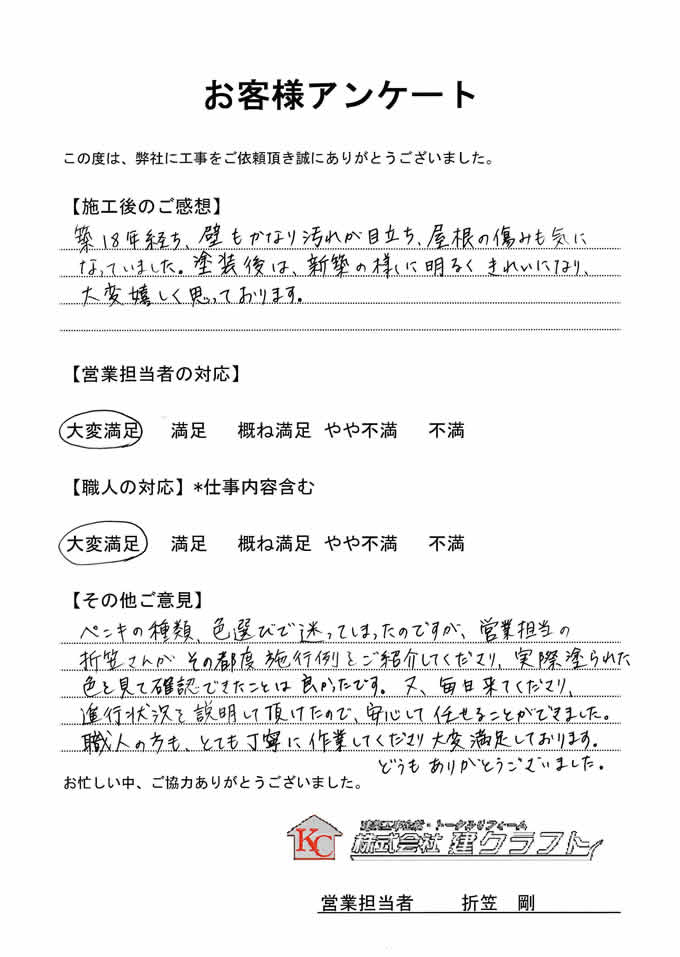 お客様アンケート
この度は、弊社に工事をご依頼頂き誠にありがとうございました。
【施工後のご感想】
築18年経ち、壁もかなり汚れが目立ち、屋根の傷みも気に
なっていました。塗装後は、新築の様に明るくきれいになり、
大変嬉しく思っております。
【営業担当者の対応】
大変満足 満足 概ね満足 やや不満 不満
【職人の対応】*仕事内容含む
大変満足 満足 概ね満足 やや不満 不満
【その他ご意見】
ペンキの種類、色選びで迷ってしまったのですが、営業担当の
折笠さんがその都度施行例をご紹介してくださり、実際塗られた
色を見て確認できたことは良かったです。又、毎日来てくださり、
進行状況を説明して頂けたので、安心して任せることができました。
職人の方も、とても丁寧に作業してくださり大変満足しております。
どうもありがとうございました。
お忙しい中、ご協力ありがとうございました。
KC
・トータルリフォーム
株式会社 建クラフト
営業担当者 折笠 剛